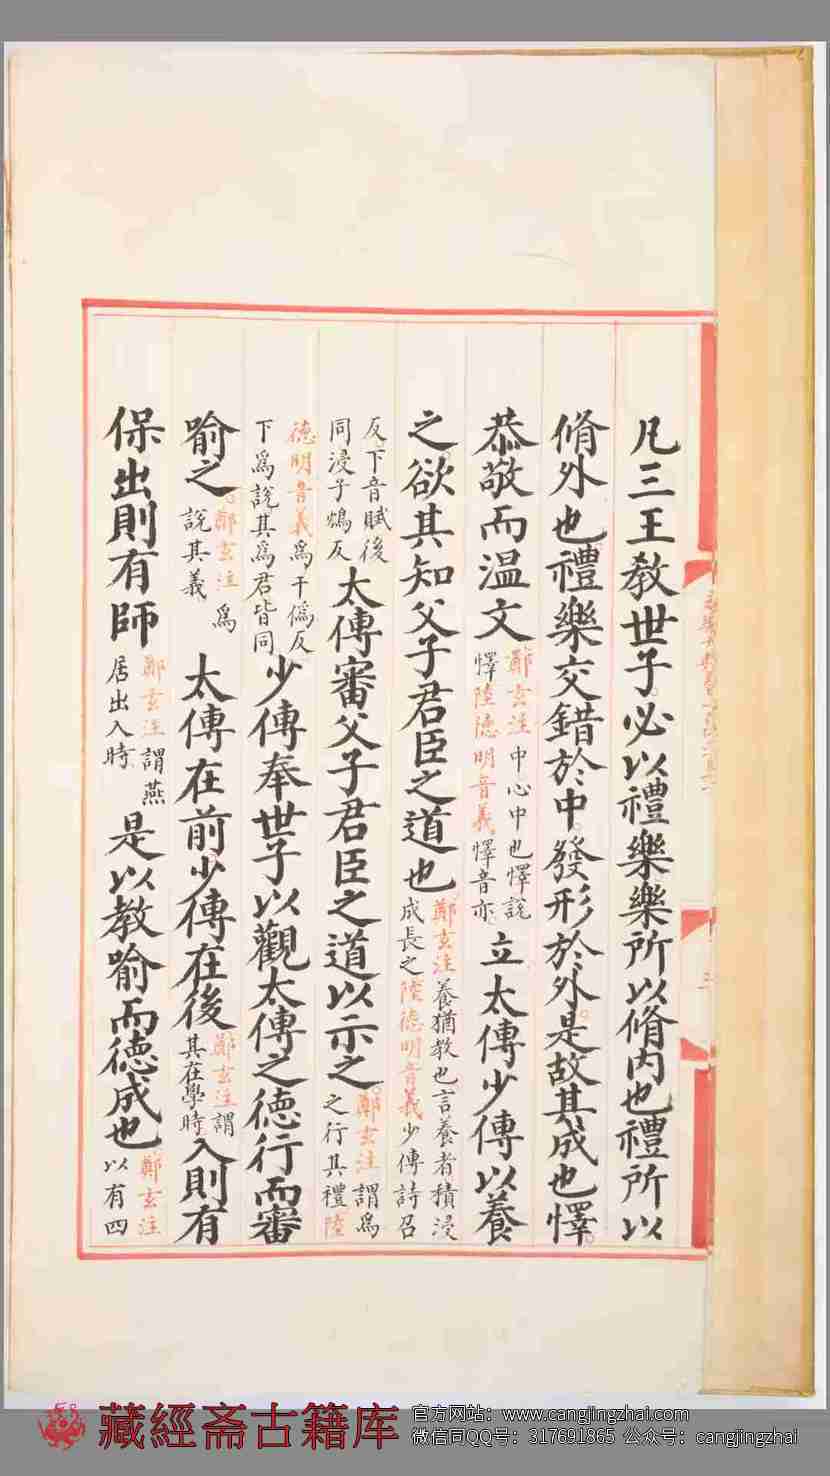 凡三王教世子必以禮樂樂所以脩内也禮所以
脩外也禮樂交錯於中發形於外是故其成也懌
恭敬而温文鄭玄注中心中也懌説懌陸德明音義懌音亦立太傅少傅以養
之欲其知父子君臣之道也鄭玄注養猶教也言養者積浸成長之陸德明音義少傅詩召
反下音賦後同浸子鴆反太傅審父子君臣之道以示之鄭玄注謂爲之行其禮陸
德明音義爲于僞反下爲說其爲君皆同少傅奉世子以觀太傅之德行而審
喻之鄭玄注爲說其義太傅在前少傅在後鄭玄注謂其在學時入則有
保出則有師鄭玄注謂燕居出入時是以教喻而德成也鄭玄注以有四
藏經斋古籍库
官方网站：www.cangjingzhai.com
微信同QQ号：317691865 公众号：cangjingzhai